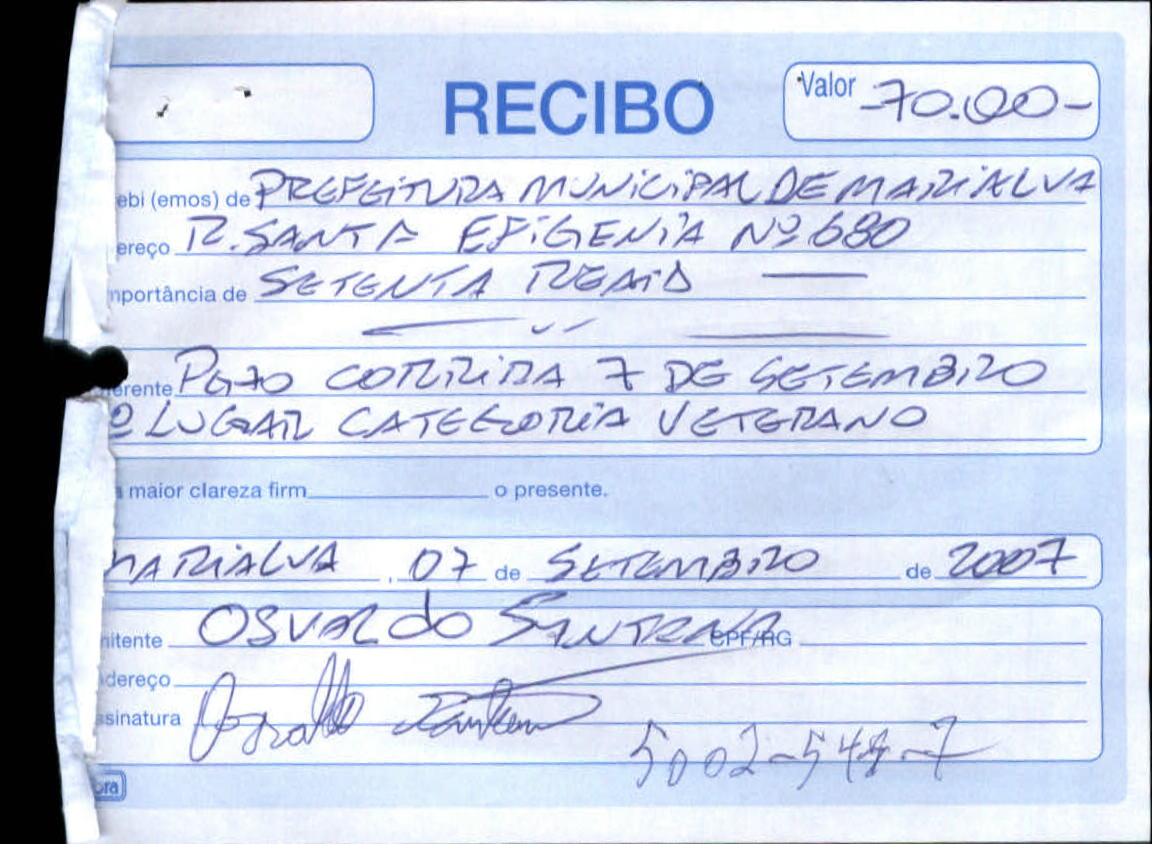 RECIBO
Valor -70.00-
ebi (emos) de PREFEITURA MUNICIPAL DE MARIALVA
ereço R. SANTA EFIGENIA Nº 680
mportância de SETENTA REAIS
erente PGTO CORRIDA 7 DE SETEMBRO
º LUGAR CATEGORIA VETERANO
a maior clareza firm o presente.
MARIALVA , 07 de SETEMBRO de 2007
mitente OSVALdo SANTANA CPF/RG
dereço
ssinatura
5002-544-7
ora